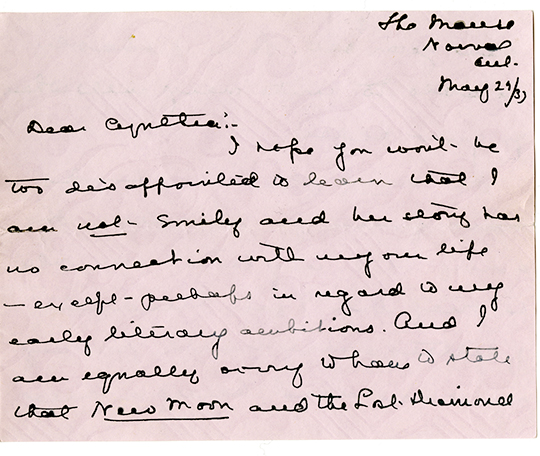 The Manse
Norval
Ont.
May 29/33
Dear Cynthia:-
I hope you won't be
too disappointed to learn that I
am not Emily and her story has
no connection with my own life
– except – perhaps in regard to my
early literary ambitions. And I
am equally sorry to have to state
that New Moon and the Lost Diamond